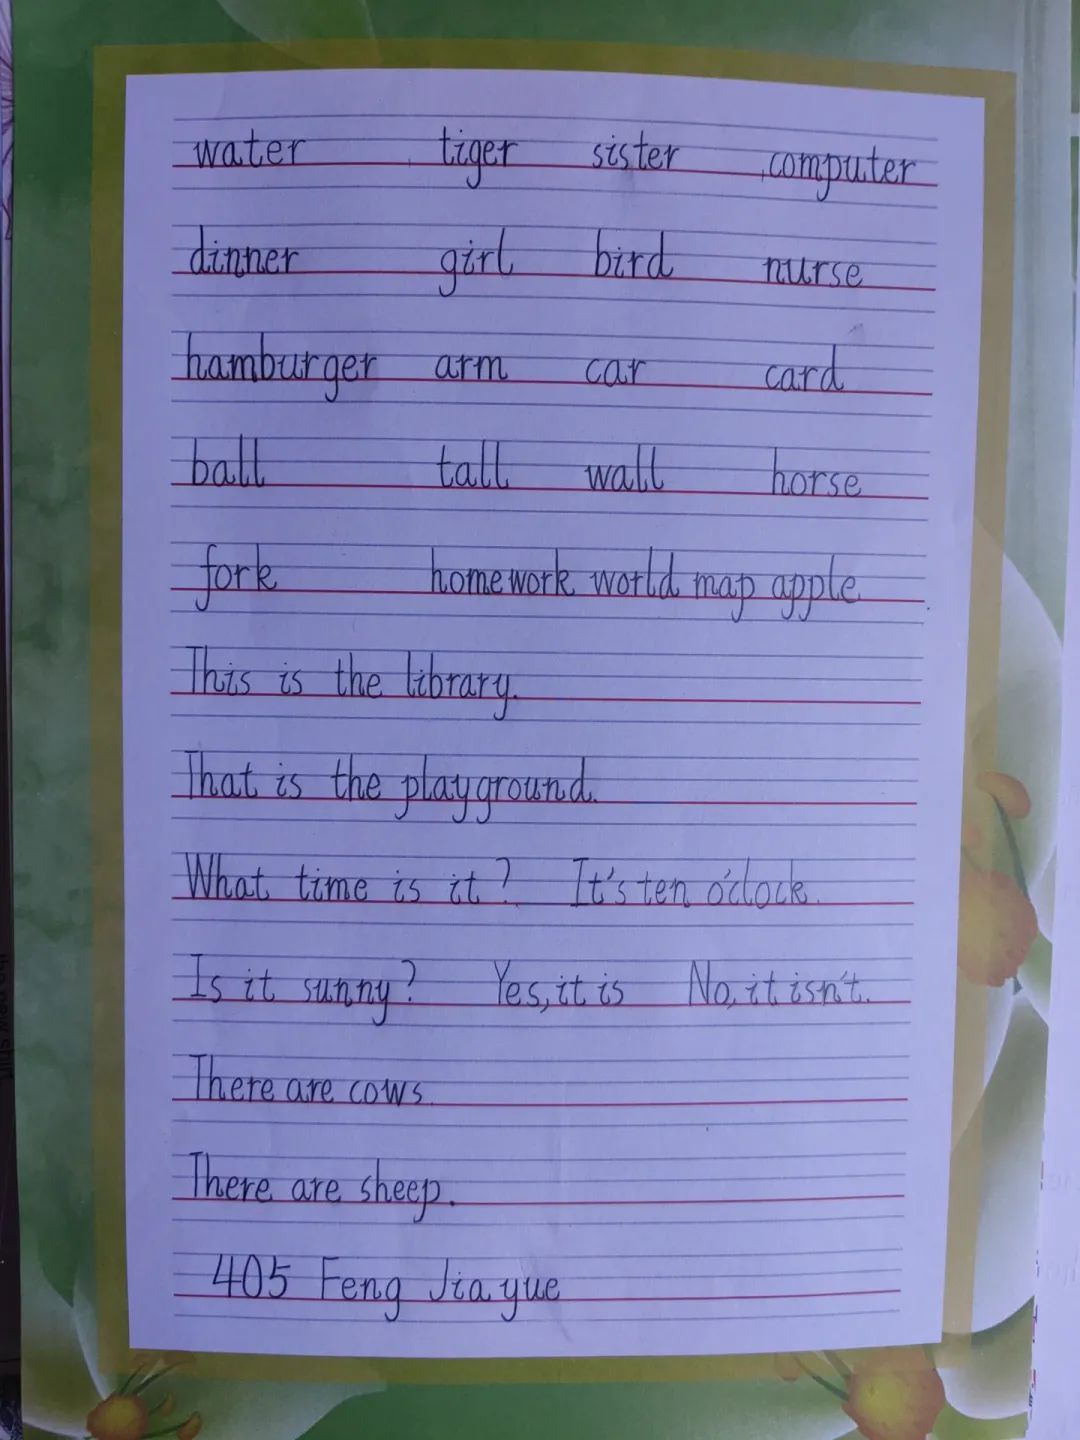 water tiger sister computer
dinner girl bird nurse
hamburger arm car card
ball tall wall horse
fork homework world map apple
This is the library.
That is the playground.
What time is it? It's ten o'clock.
Is it sunny? Yes, it is No, it isn't.
There are cows.
There are sheep.
405 Feng Jia yue